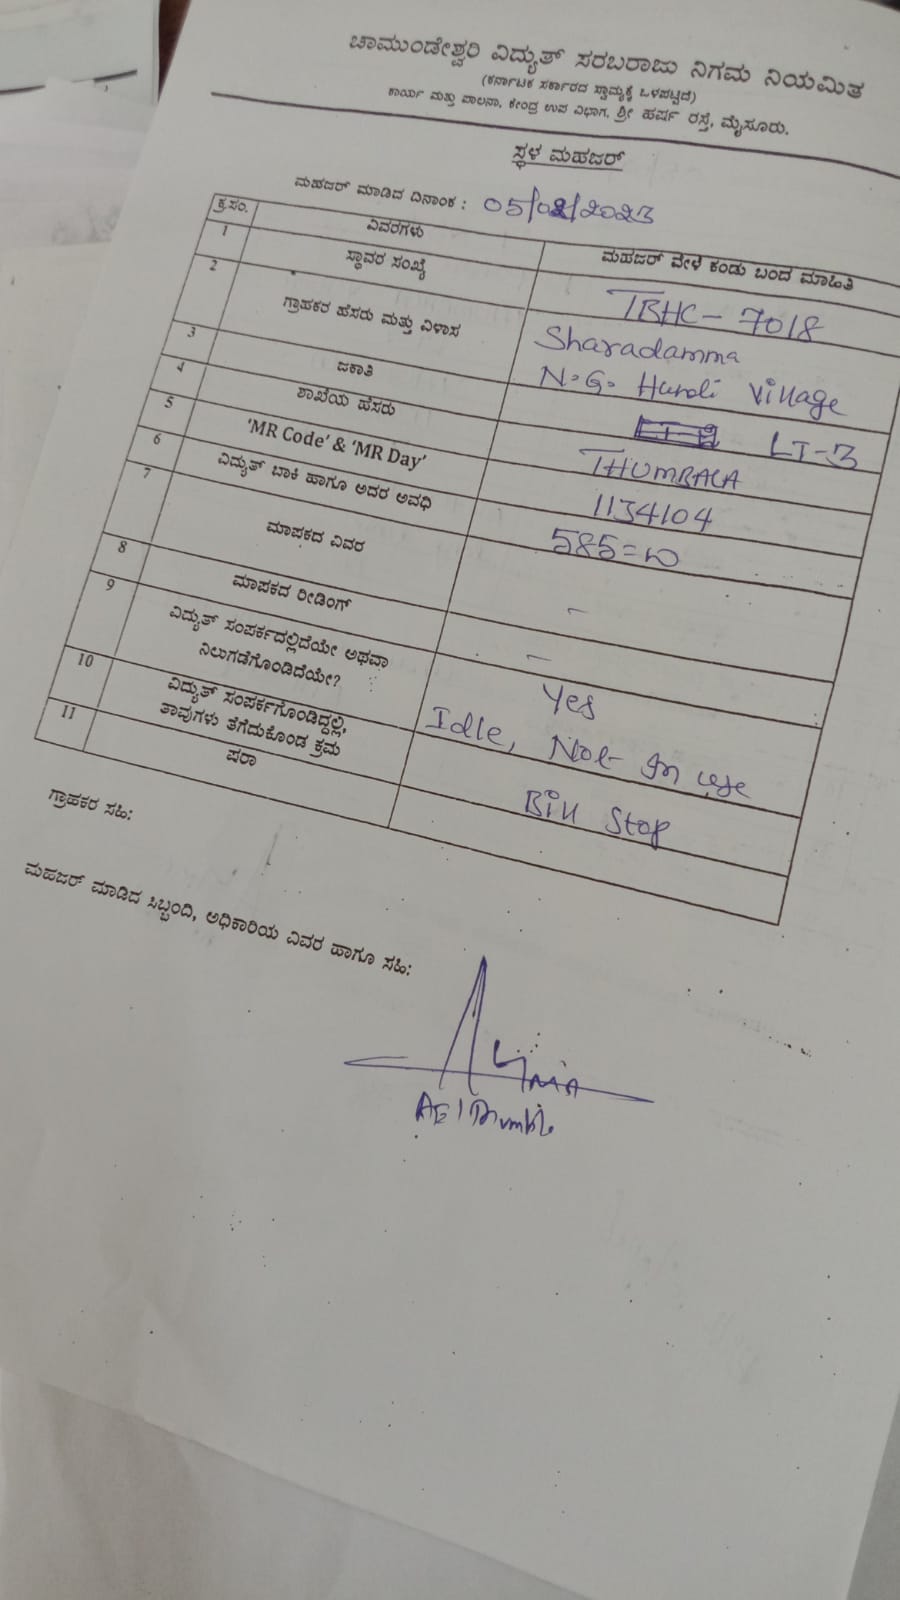 ಚಾಮುಂಡೇಶ್ವರಿ ವಿದ್ಯುತ್ ಸರಬರಾಜು ನಿಗಮ ನಿಯಮಿತ
(ಕರ್ನಾಟಕ ಸರ್ಕಾರದ ಸ್ವಾಮ್ಯಕ್ಕೆ ಒಳಪಟ್ಟಿದೆ)
ಕಾರ್ಯ ಮತ್ತು ಪಾಲನಾ, ಕೇಂದ್ರ ಉಪ ವಿಭಾಗ, ಶ್ರೀ ಹರ್ಷ ರಸ್ತೆ, ಮೈಸೂರು.
ಸ್ಥಳ ಮಹಜರ್
ಮಹಜರ್ ಮಾಡಿದ ದಿನಾಂಕ : 05/02/2023
ಕ್ರ.ಸಂ. ವಿವರಗಳು ಮಹಜರ್ ವೇಳೆ ಕಂಡು ಬಂದ ಮಾಹಿತಿ
1 ಸ್ಥಾವರ ಸಂಖ್ಯೆ TBHC - 7018
2 ಗ್ರಾಹಕರ ಹೆಸರು ಮತ್ತು ವಿಳಾಸ Sharadamma
N.G. Hundi Village
3 ಜಕಾತಿ LT-3
4 ಶಾಖೆಯ ಹೆಸರು THUMBALA
5 'MR Code' & 'MR Day' 1134104
6 ವಿದ್ಯುತ್ ಬಾಕಿ ಹಾಗೂ ಅದರ ಅವಧಿ 585=00
7 ಮಾಪಕದ ವಿವರ -
8 ಮಾಪಕದ ರೀಡಿಂಗ್ -
9 ವಿದ್ಯುತ್ ಸಂಪರ್ಕದಲ್ಲಿದೆಯೇ ಅಥವಾ
ನಿಲುಗಡೆಗೊಂಡಿದೆಯೇ? Yes
Idle, Not In use
10 ವಿದ್ಯುತ್ ಸಂಪರ್ಕಗೊಂಡಿದ್ದಲ್ಲಿ,
ತಾವುಗಳು ತೆಗೆದುಕೊಂಡ ಕ್ರಮ Bill Stop
11 ಷರಾ
ಗ್ರಾಹಕರ ಸಹಿ:
ಮಹಜರ್ ಮಾಡಿದ ಸಿಬ್ಬಂದಿ, ಅಧಿಕಾರಿಯ ವಿವರ ಹಾಗೂ ಸಹಿ: